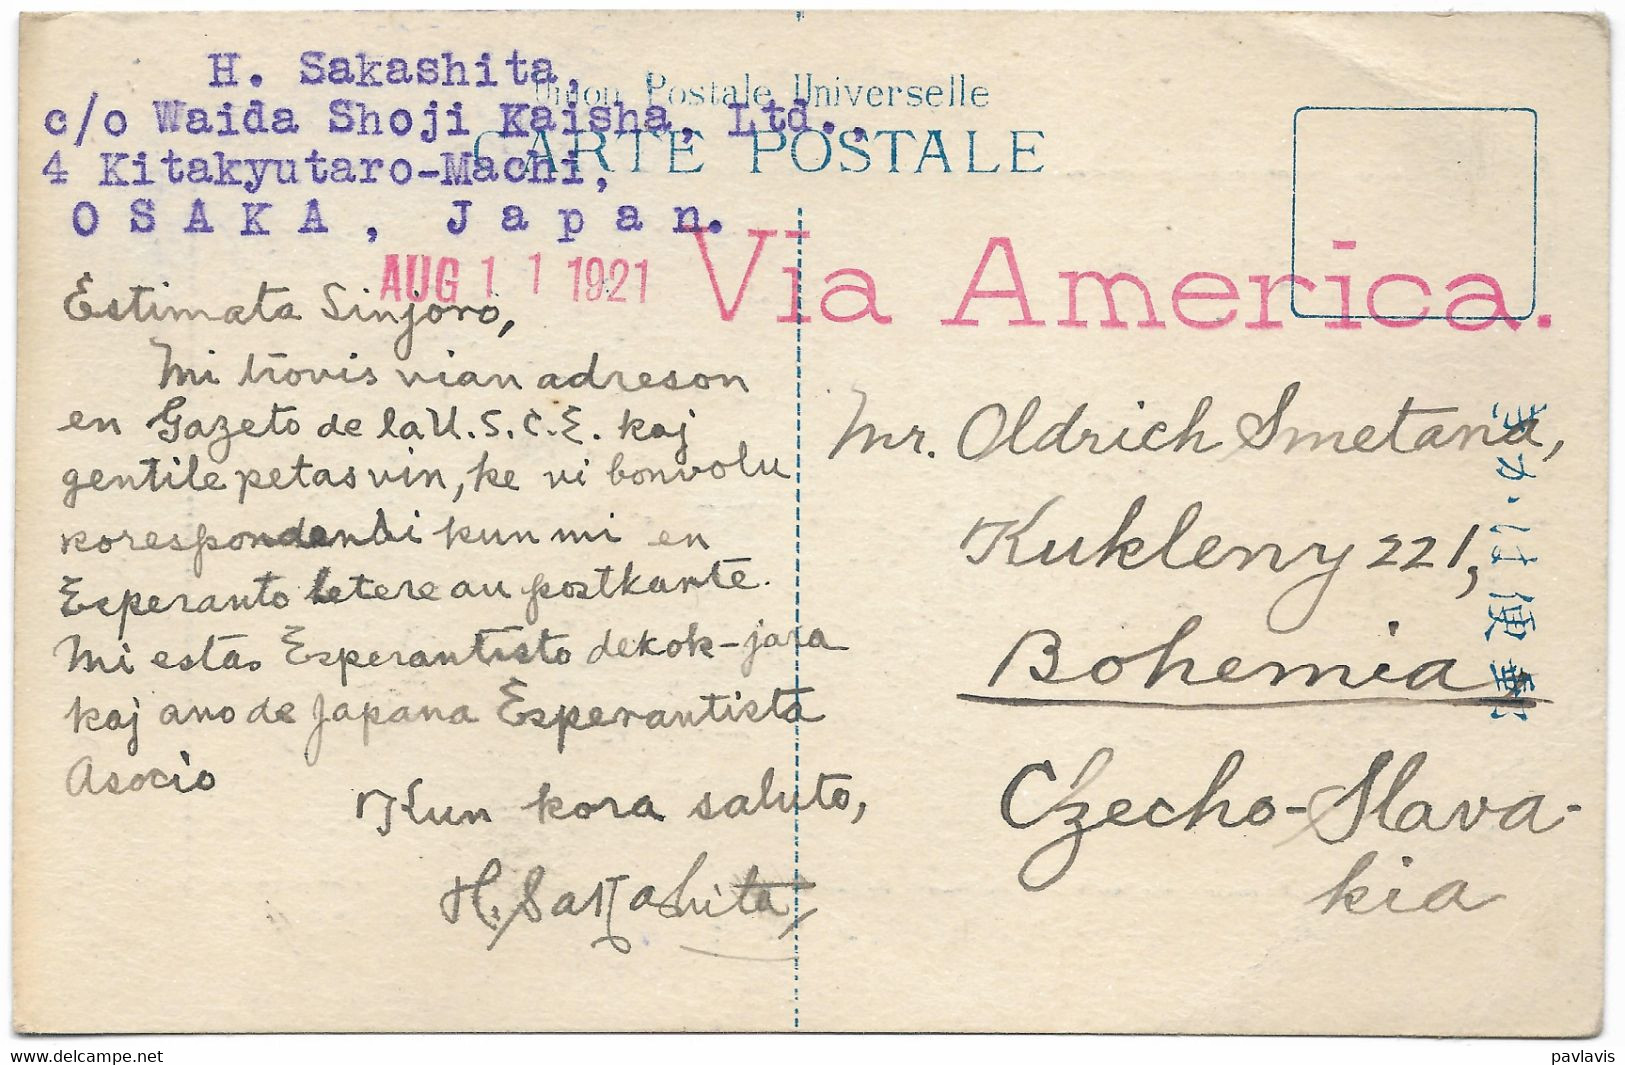 H. Sakashita,
c/o Waida Shoji Kaisha, Ltd.,
4 Kitakyutaro-Machi,
OSAKA, Japan.
Union Postale Universelle
CARTE POSTALE
AUG 11 1921
Via America.
Estimata Sinjoro,
Mi trovis vian adreson
en Gazeto de la U.S.C.E. kaj
gentile petas vin, ke vi bonvolu
korespondenbi kun mi en
Esperanto letere au postkarte.
Mi estas Esperantisto dekok-jara
kaj ano de Japana Esperantista
Asocio
Kun kora saluto,
H. Sakashita,
Mr. Oldrich Smetana,
Kukleny 221,
Bohemia
Czecho-Slava-
kia
きか・は便郵
delcampe.net
pavlavis